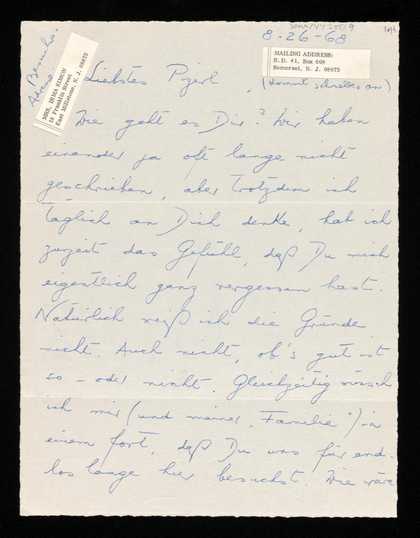 8-26-68
Besuchs-
Adresse
MRS. IRMA SIMON
18 Franklin Street
East Millstone, N. J. 08873
MAILING ADDRESS:
R.D. #1, Box 608
Somerset, N. J. 08873
Liebstes , (kommt schreibe an)
Wie geht es Dir? Wir haben
einander ja oft lange nicht
geschrieben, aber trotzdem ich
täglich an Dich denke, hab ich
zurzeit das Gefühl, daß Du mich
eigentlich ganz vergessen hast.
Natürlich weiß ich die Gründe
nicht. Auch nicht, ob's gut ist
so - oder nicht. Gleichzeitig wünsch
ich mir (und meiner "Familie") in
einem fort, daß Du uns für end-
los lange hier besuchst. Wie wäre